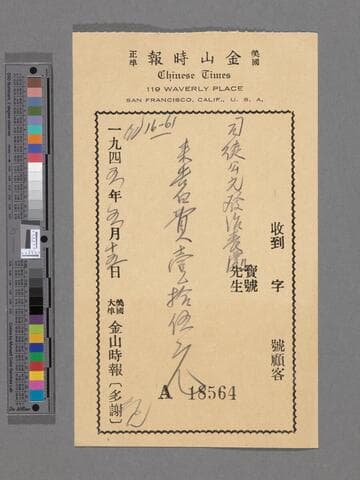 美國
正埠
報時山金
Chinese Times
119 WAVERLY PLACE
SAN FRANCISCO, CALIF., U. S. A.
收到 字 號顧客
寶號
先生
來告白費壹拾伍元
16-61
一九四五年五月十五日
美國
大埠
金山時報〔多謝〕
A 18564